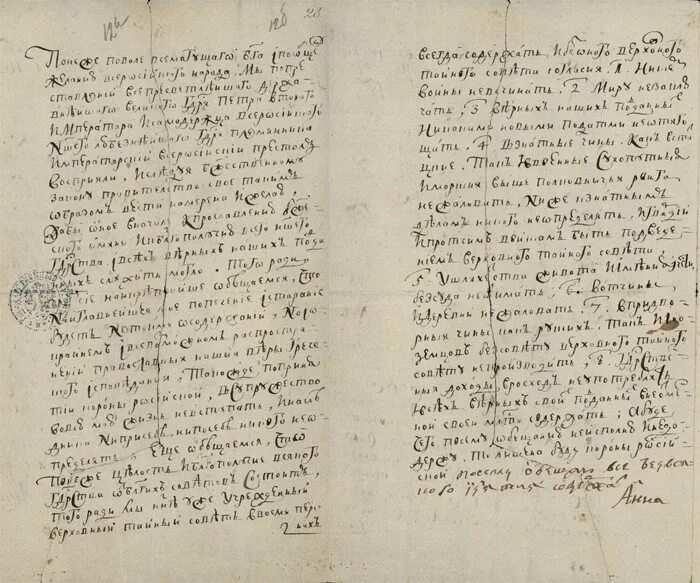 126
23
Понеже поволе всемогущаго бга iпообще
желанию всеросиiского народа, Мы попре
ставленiи всепресветлѣйшаго држа
внѣйшаго великого Гдря Петра втораго
Императора Iсамодержца Всеросиiского
Ншего любезнѣйшаго Гдря племянника
Императорскiй всеросиiскiй престолъ
восприяли, Iслѣдуя бжественному
закону правителство свое такимъ
образомъ вести намерена Iжелаю,
дабы оное вначале кпрославленiю бже
ского имяни Iкблагополучию всего ншего
Гдрства Iвсѣхъ вѣрныхъ нашихъ подда
ныхъ служить могло. Птого ради
сiе наикрѣпчайше обѣщаемся, Что
наиглавнѣйшее мое попеченiе Iстаранiе
будетъ нетокмо осодержанiи, Но iо
крайнемъ iвсевозможномъ распростра
ненiи православныя нашея вѣры Грече
ского iсповѣданiя, Такожде поприня
тiи короны росиiской, Всупружство
вовсю мою жизнь невступать, Инаслѣ
дника Ниприсебѣ нипосебѣ никого нео
пределять, Еще обѣщаемся, Что
понеже цѣлость Iблагополучие всякого
Гдрства отблгихъ совѣтовъ состоитъ,
того ради Мы ннѣ уже учрежденный
верховный тайный совѣтъ восми персо
нахъ
всегда содержать, Iбезоного верховного
тайного совѣта согласия, 1. Нискемъ
воины невсчинать, 2 Миру незаклю
чать, 3 вѣрныхъ нашихъ подданныхъ
Никакими новыми податми неотяго
щать, 4 Взнатные чины, какъ встацкие,
такъ Iввоенные сухопутные
Iморские выше полковничья ранга
нежаловать, Ниже кзнатнымъ
дѣламъ никого неопределять, Iгвардiи
Iпротчимъ воискамъ быть подведе
ниемъ верховного тайного совѣта,
5. Ушляхетства живота Iимѣния
безсуда неотымать, 6. вотчины,
Iдеревни нежаловать, 7. впридво
рные чины, какъ руских, такъ Iино
земцовъ безсовѣту верховного тайного
совѣту непроизводить, 8. Гдрстве
ныя доходы врасходъ неупотреблять
Iвсѣхъ вѣрныхъ своихъ подданныхъ внеотме
нной своей млсти содержать, Абуде
чего посему обѣщанию неисполню Iнедо
держу, то лишена буду короны росиi
ской посему обещаю все безвся
кого изятия содержать
Анна